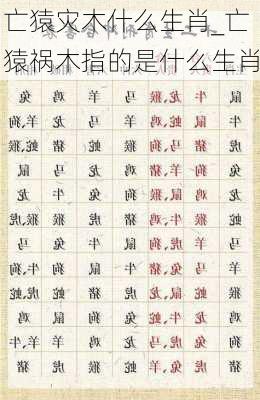 亡猿灾木什么生肖_亡
猿祸木指的是什么生肖
鼠 牛 龙,猴 马 羊 鸡 兔
牛 鼠 蛇,鸡 羊 马 龙 羊,狗
虎 猪 马,狗 猴 蛇 猪 蛇,猴
兔 狗 羊,猪 鸡 龙 马 鼠
龙 鸡 鼠,猴 狗 兔 牛 龙
蛇 猴 鸡,牛 猪 虎 猴 虎,猴
马 羊 虎,狗 鼠 牛 兔 马
羊 马 兔,猪 牛 鼠 狗 牛,狗
猴 蛇 鼠,龙 虎 猪 蛇 蛇,虎
鸡 龙 牛,蛇 兔 狗 鼠 鸡
狗 兔 虎,马 龙 鸡 羊 牛,羊
猪 虎 兔,羊 蛇 猴 虎 猪